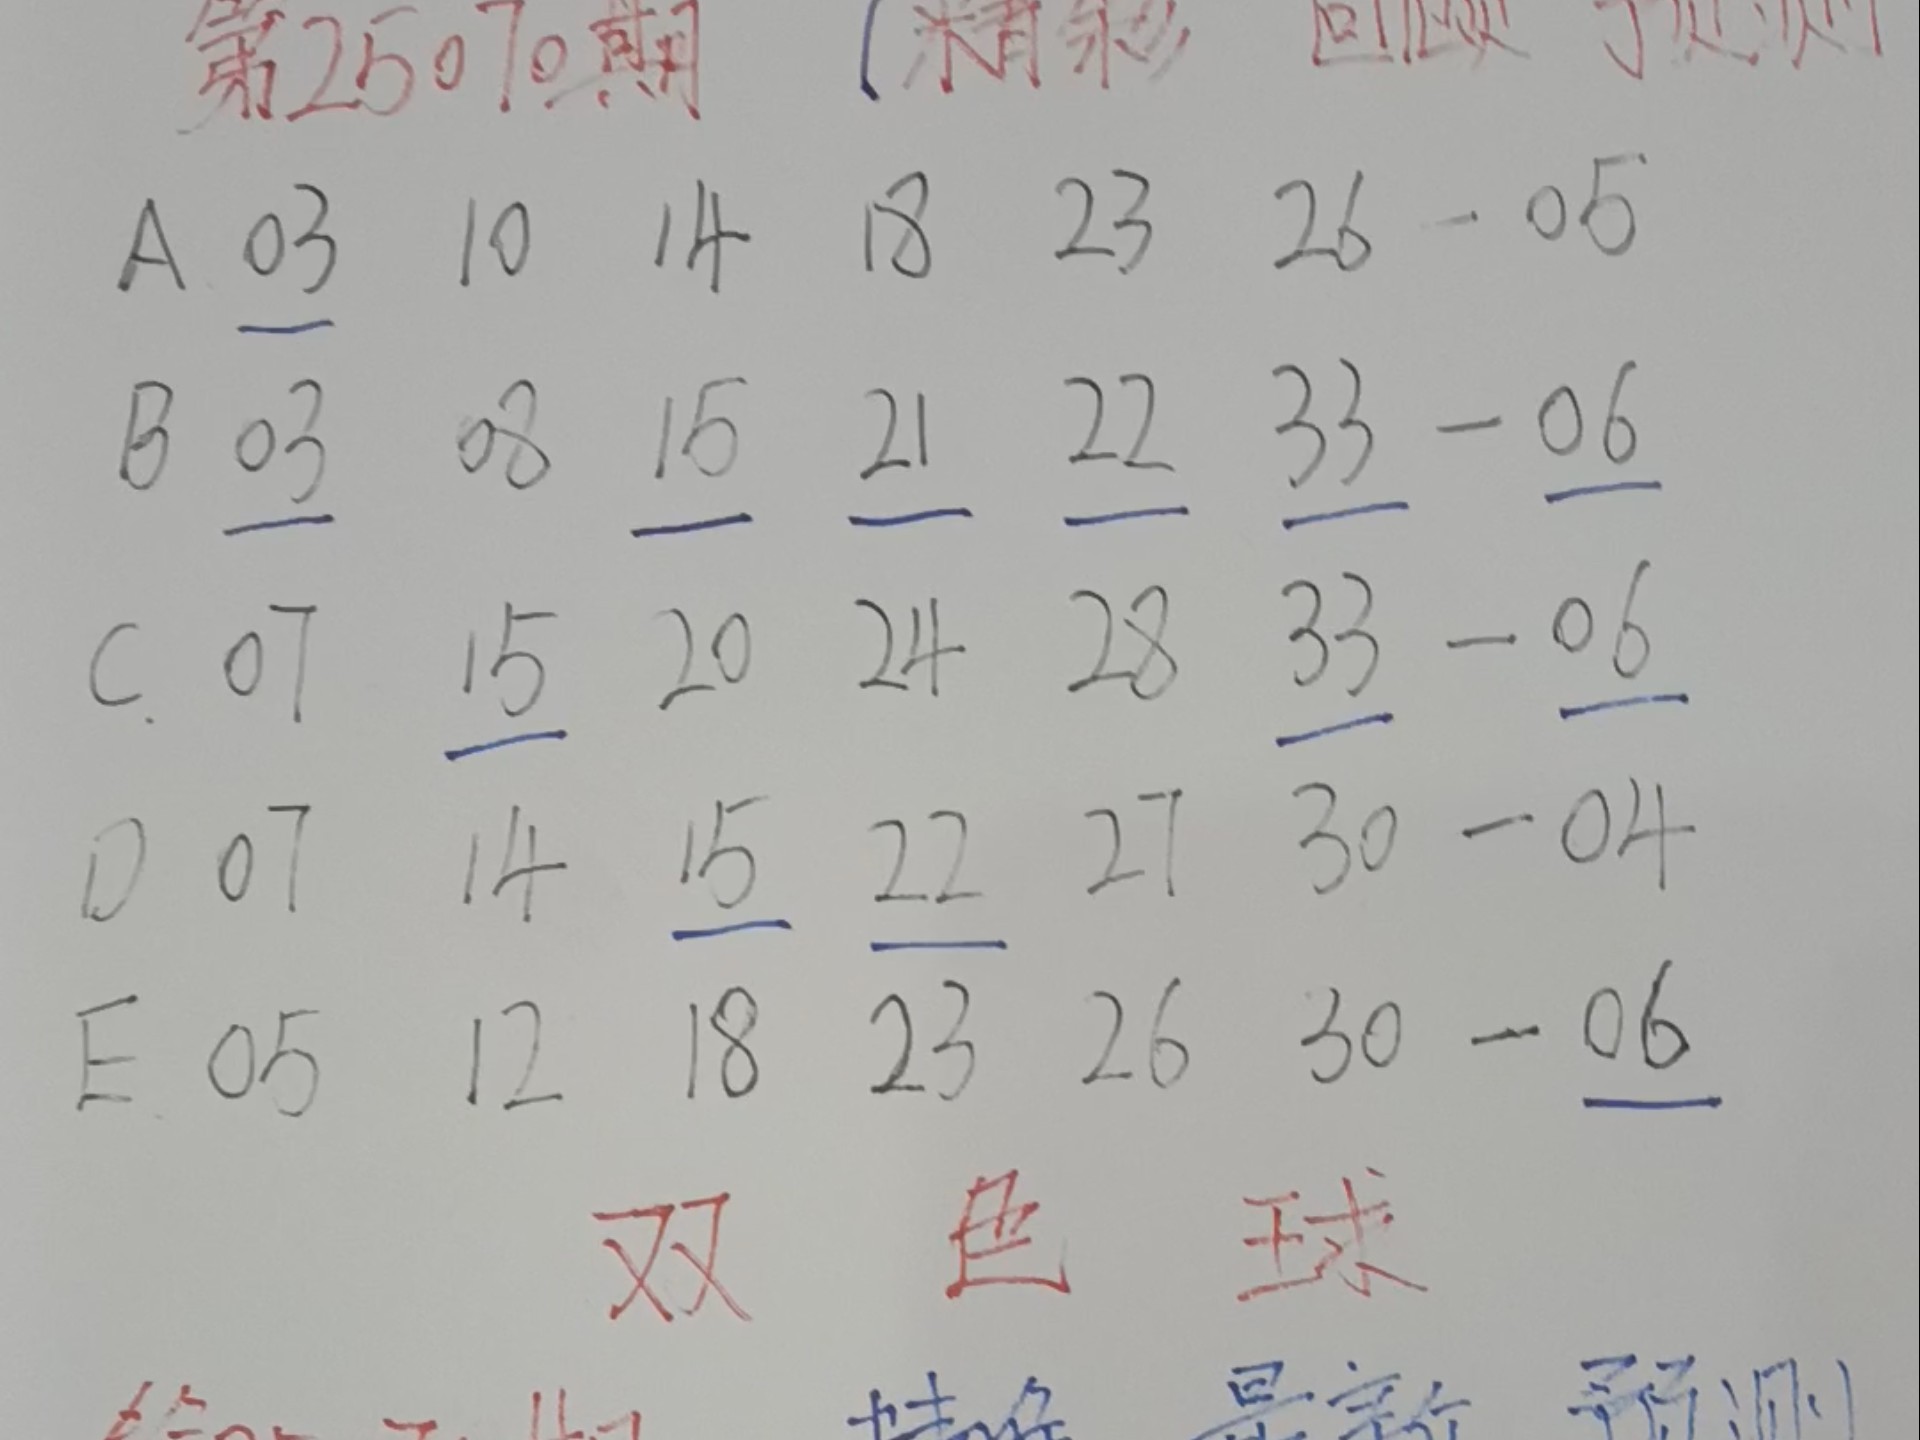 第25070期 (精彩 回顾 预测
A 03 10 14 18 23 26 - 05
B 03 08 15 21 22 33 - 06
C. 07 15 20 24 28 33 - 06
D 07 14 15 22 27 30 - 04
E. 05 12 18 23 26 30 - 06
双 色 球
最新 预测